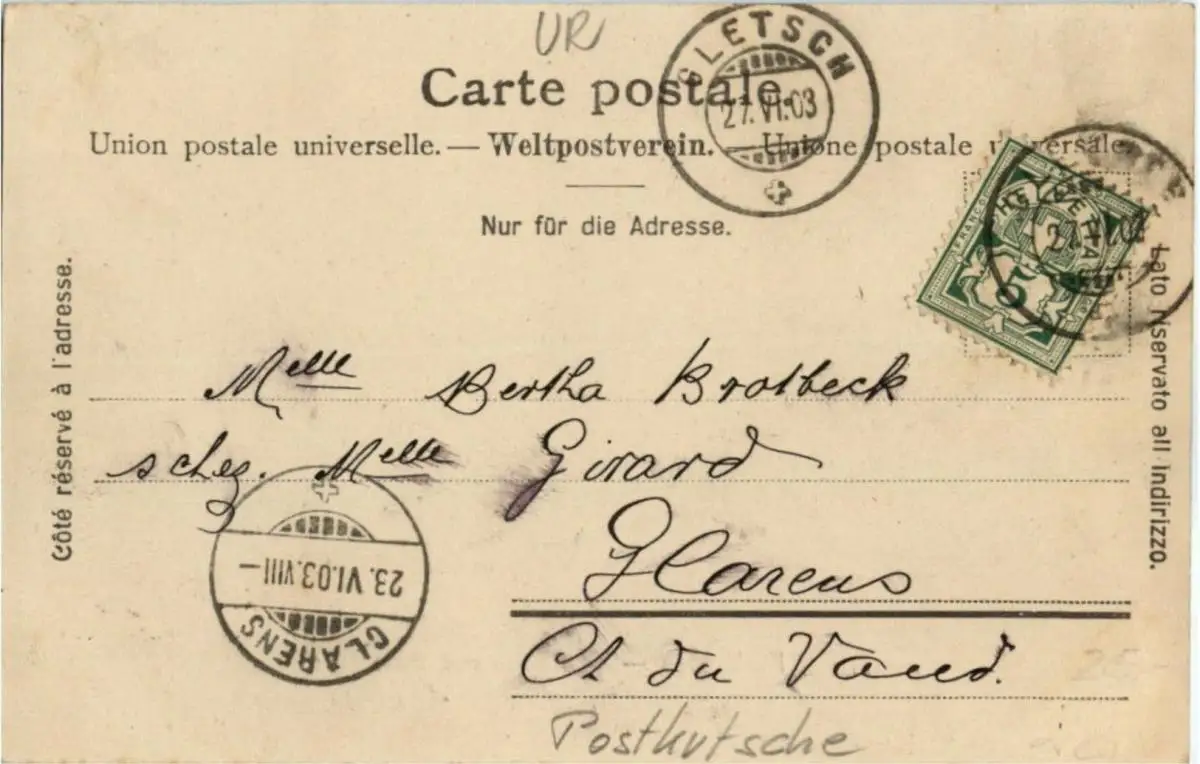 UR
GLETSCH
27.VI.03
Carte postale.
Union postale universelle. — Weltpostverein. — Unione postale universale.
Nur für die Adresse.
Côté réservé à l'adresse.
Lato riservato all indirizzo.
HELVETIA
FRANCO
5
27.VI.03
Melle Bertha Brotbeck
schez. Melle Girard
Glarens
Ct du Vaud.
CLARENS
23.VI.03.VIII–
Postkutsche
25-